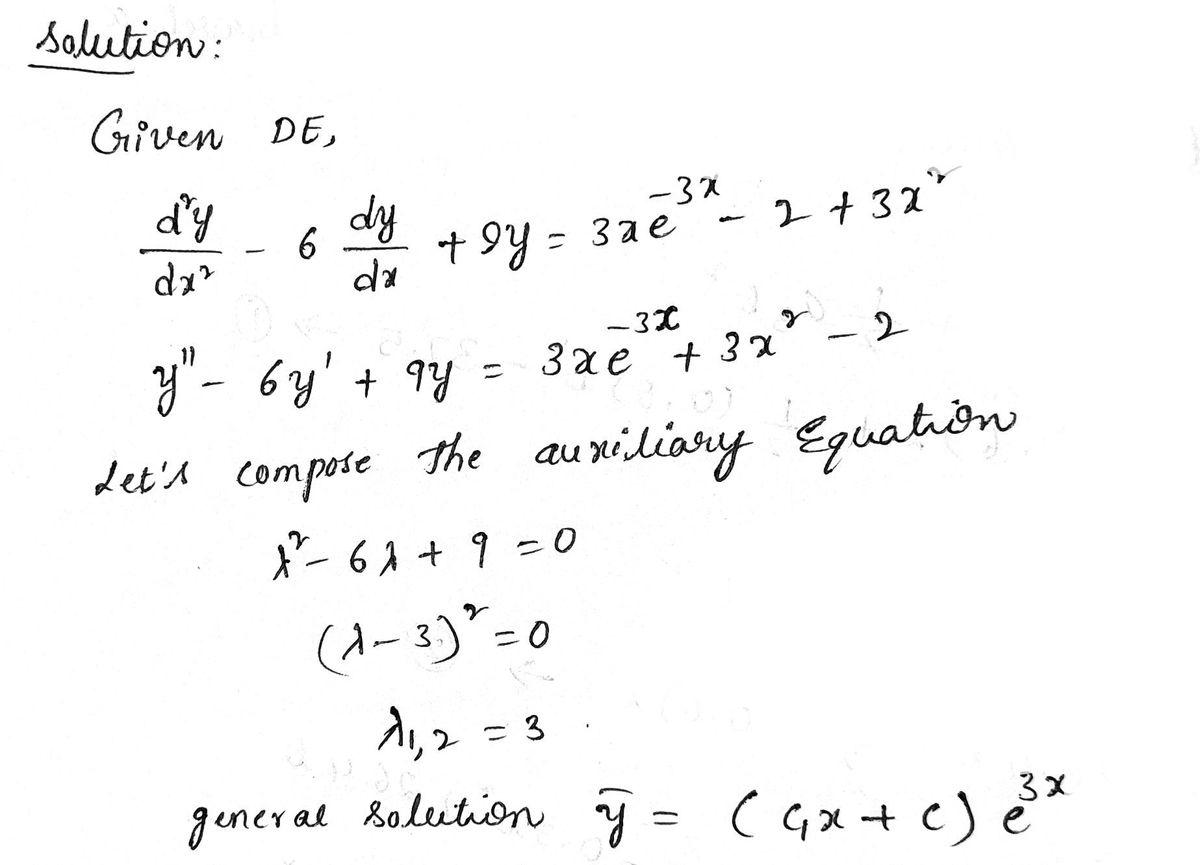 Solution:
Given DE,
d²y/dx² - 6 dy/dx + 9y = 3xe^-3x - 2 + 3x²
y'' - 6y' + 9y = 3xe^-3x + 3x² - 2
Let's compose the auxiliary Equation
λ² - 6λ + 9 = 0
(λ - 3)² = 0
λ1,2 = 3
general solution ȳ = (C₁x + C) e^3x